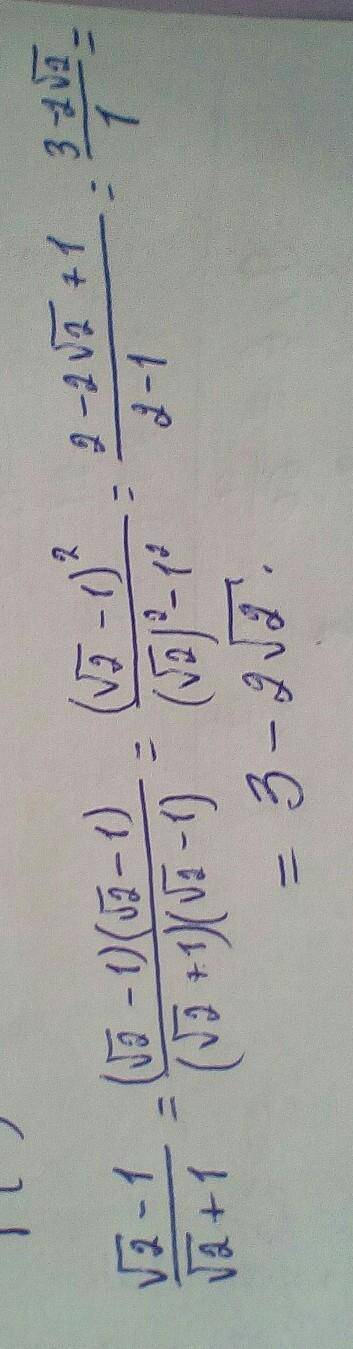 (√2 - 1)/(√2 + 1) = ((√2 - 1)(√2 - 1))/((√2 + 1)(√2 - 1)) = (√2 - 1)²/((√2)² - 1²) = (2 - 2√2 + 1)/(2 - 1) = (3 - 2√2)/1 =
= 3 - 2√2.